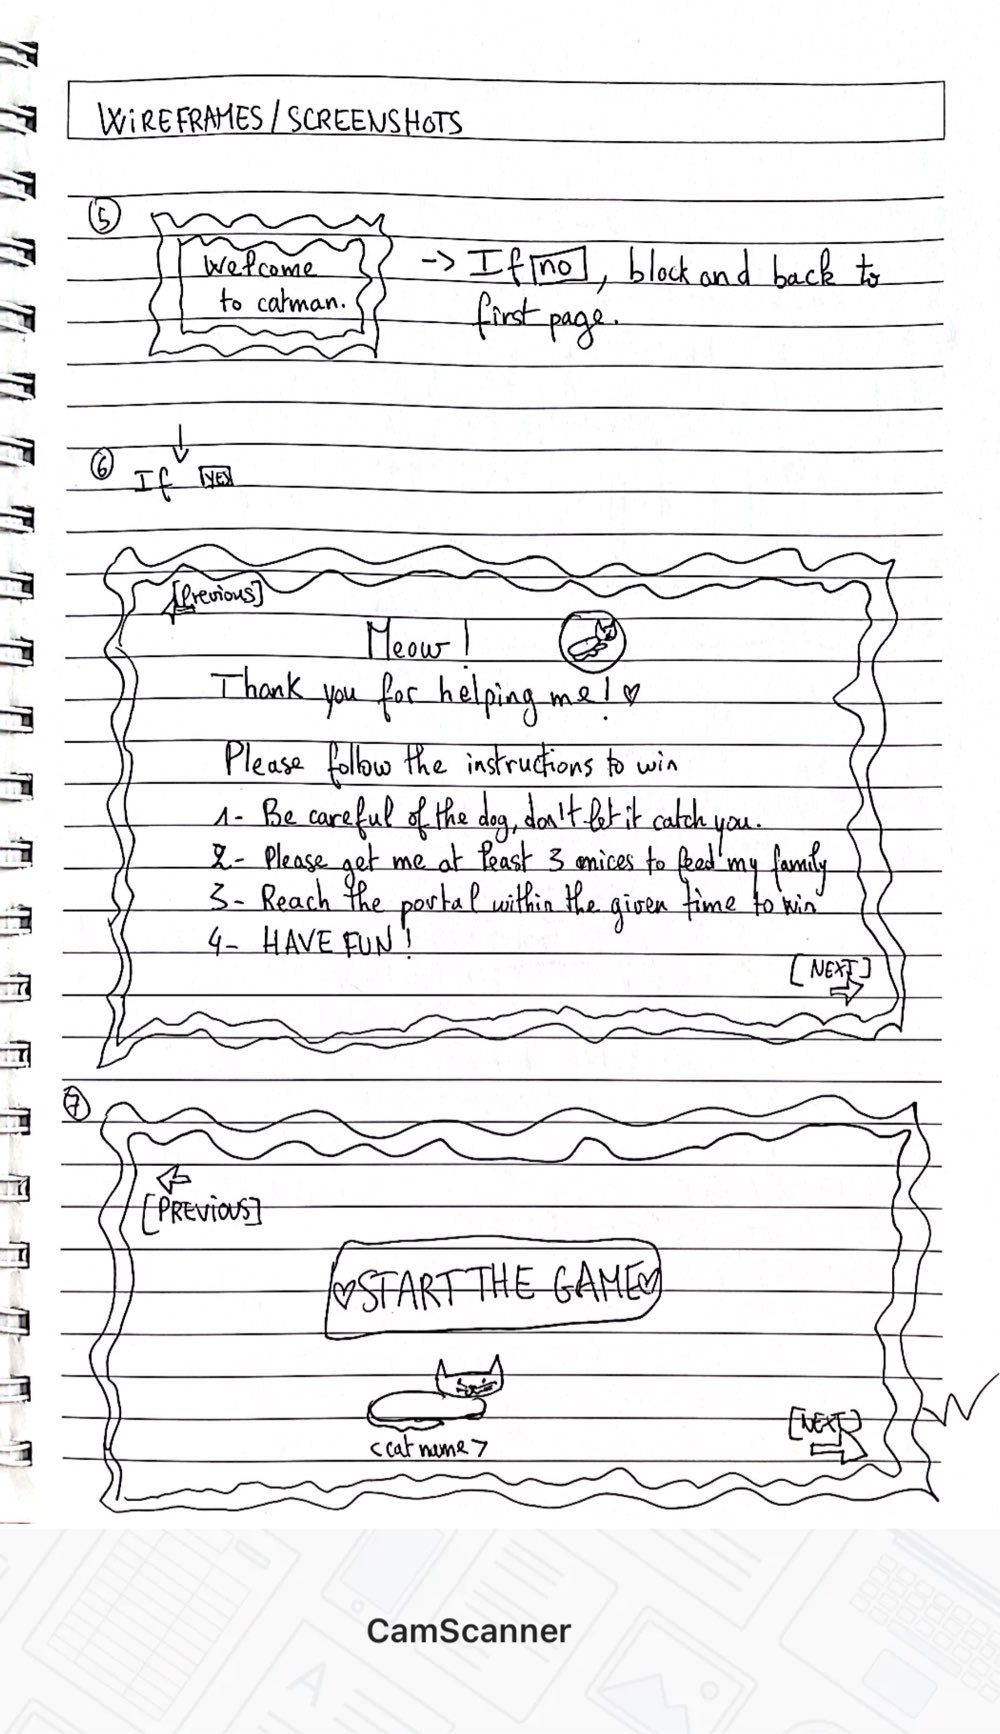 WIREFRAMES/SCREENSHOTS
5
Welcome
to catman.
-> If no, block and back to
first page.
6
If YES
[Previous]
Meow!
Thank you for helping me! ♡
Please follow the instructions to win
1- Be careful of the dog, don't let it catch you.
2- Please get me at least 3 mices to feed my family
3- Reach the portal within the given time to win
4- HAVE FUN!
[NEXT]
7
[PREVIOUS]
♡START THE GAME♡
<cat name>
[NEXT]
CamScanner